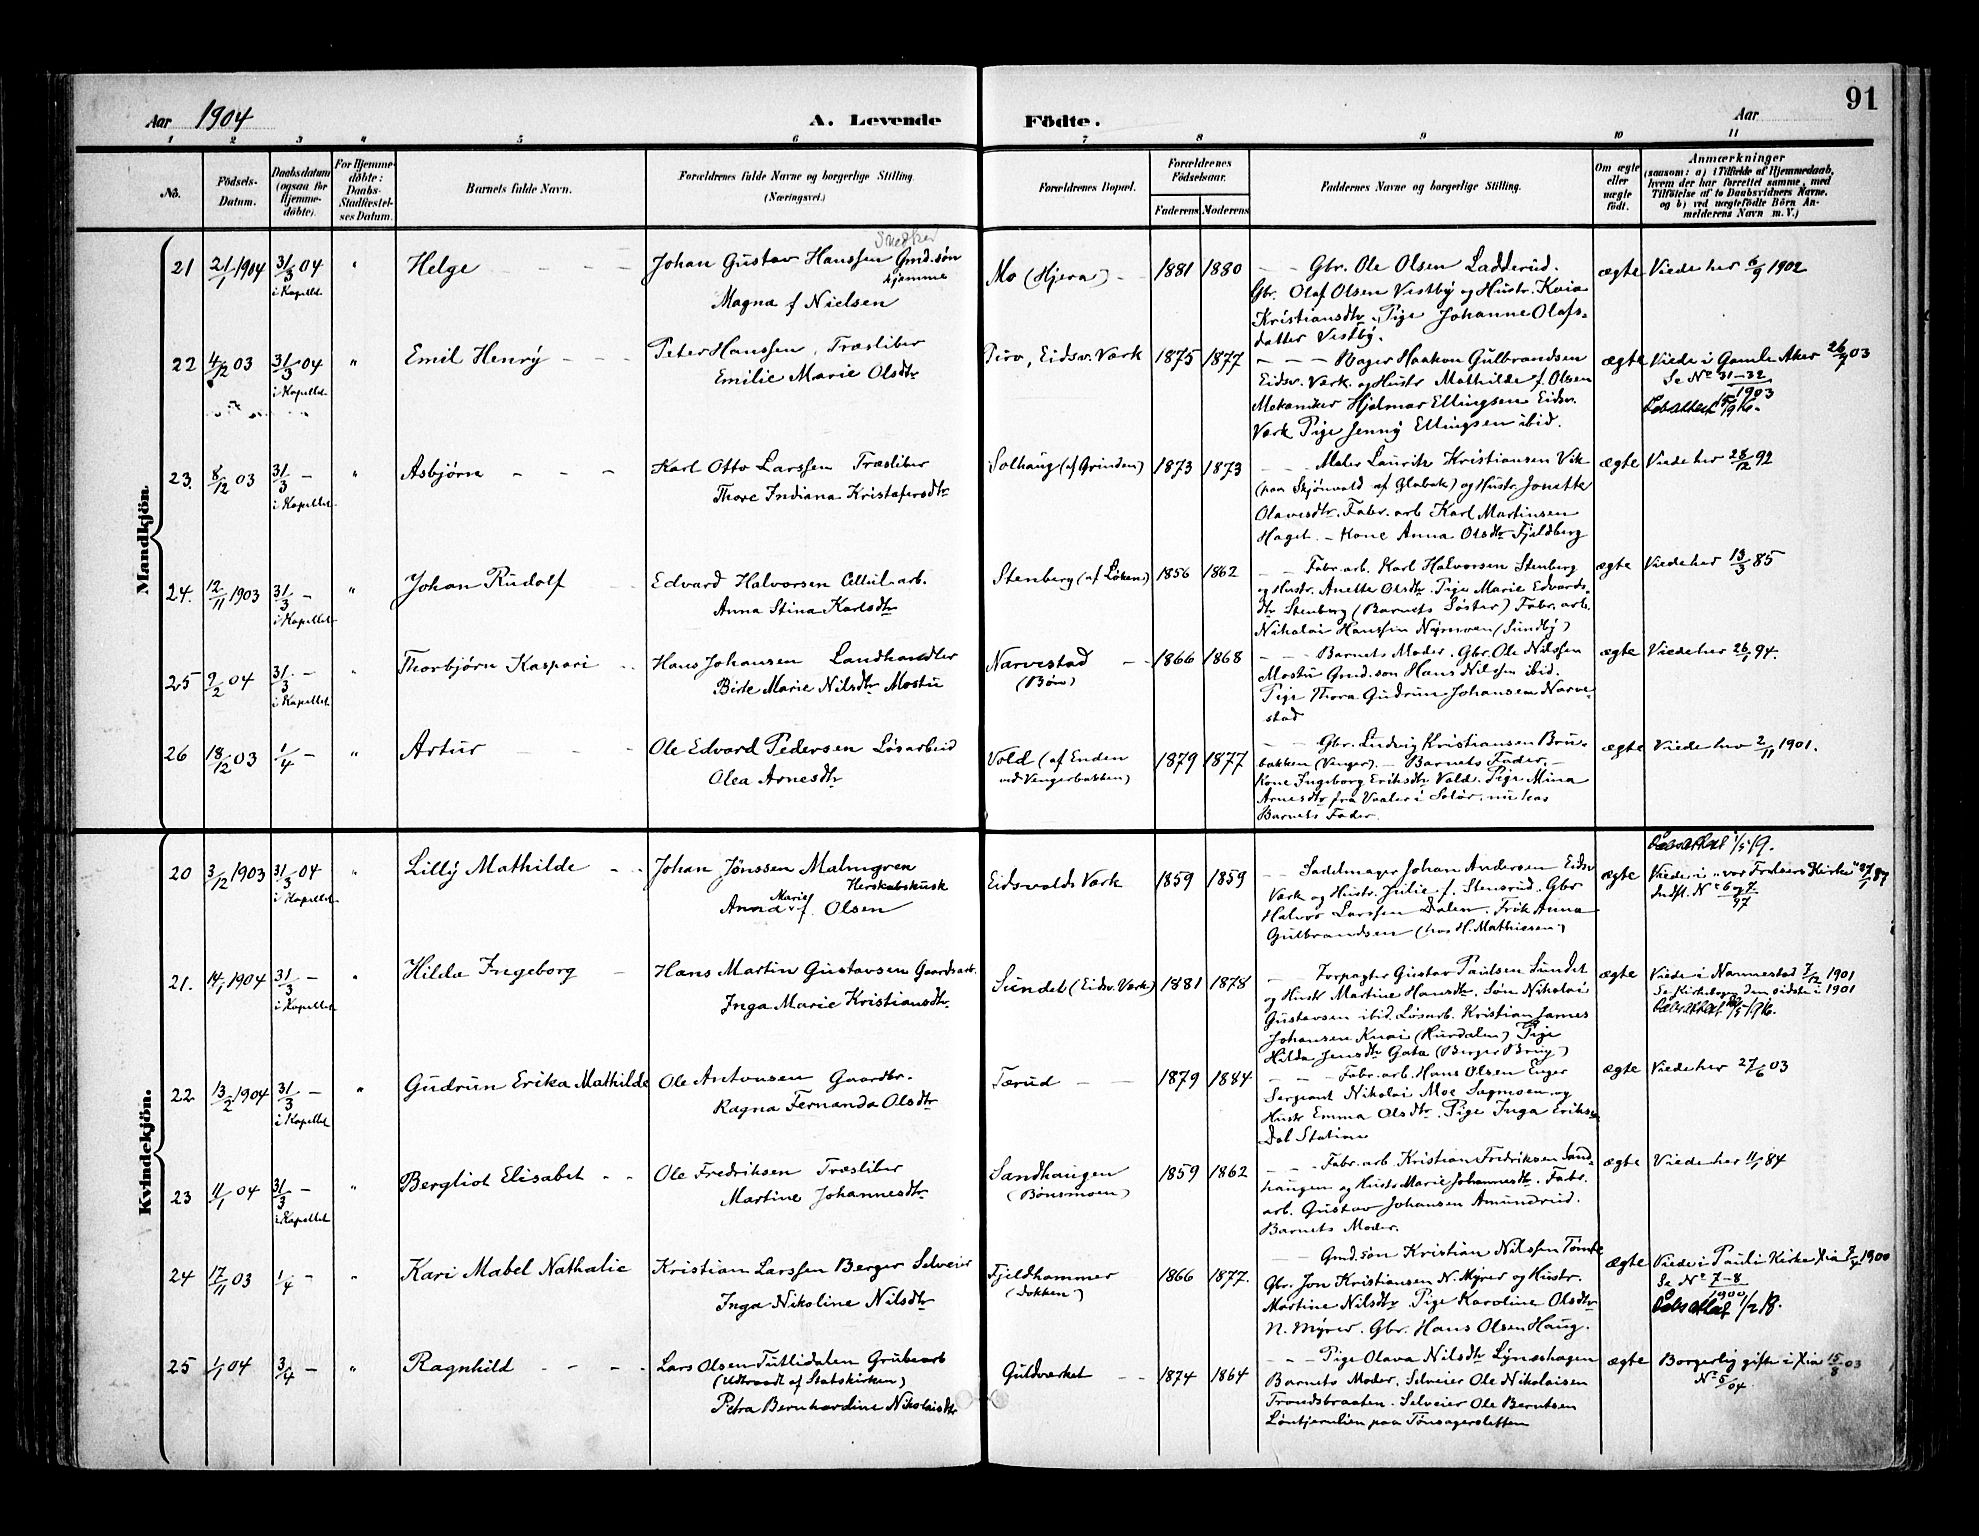 91
Aar 1904
A. Levende Födte.
Aar
1 2 3 " 5 6 7 8 9 10 11
No.
Födsels-Datum.
Daabsdatum (ogsaa for Hjemme-döbte).
For Hjemme-döbte: Daabs-Stadfæstel-ses Datum.
Barnets fulde Navn.
Forældrenes fulde Navne og borgerlige Stilling. (Næringsvei.)
Forældrenes Bopæl.
Forældrenes Födselsaar.
Faderens Moderens
Faddernes Navne og borgerlige Stilling.
Om ægte eller uægte födt.
Anmærkninger
(saasom: a) i Tilfælde af Hjemmedaab, hvem der har forrettet samme, med Tilföielse af to Daabsvidners Navne, og b) ved uægtefödte Börn An-melderens Navn m. V.)
Mandkjön.
21 21/1 1904 31/3 04 i Kapellet " Helge
Snedker
Johan Gustav Hanssen Gmd.søn hjemme
Magna f Nielsen
Mo (Hjera) 1881 1880
Gbr. Ole Olsen Ladderud.
Gbr. Olaf Olsen Vestby og Hustr. Kaia
Kristiansdtr. Pige Johanne Olafs-
datter Vestby.
ægte Viede her 6/9 1902
22 4/12 03 31/3 04 i Kapellet " Emil Henry
Peter Hanssen, Træsliber
Emilie Marie Olsdtr
Piro, Eidsv. Værk 1875 1877
Bager Haakon Gulbrandsen
Eidsv. Værk. og Hustr Mathilde f. Olsen
Mekaniker Hjalmar Ellingsen Eidsv.
Værk Pige Jenny Ellingsen ibid.
ægte Viede i Gamle Aker 26/7 03
Se No 31-32
1903
23. 8/12 03 31/3 - i Kapellet " Asbjørn
Karl Otto Larssen Træsliber
Thore Indiana Kristofersdtr
Solhaug (af Grinden) 1873 1873
Maler Lauritz Kristiansen Vik
(paa Skjønvold af Globak) og Hustr. Jonette
Olavesdtr. Fabr. arb Karl Martinsen
Haget. - Kone Anna Olsdtr Fjeldberg
ægte Viede her 28/12 92
24. 12/11 1903 31/3 - i Kapellet " Johan Rudolf
Edvard Halvorsen Cellul. arb.
Anna Stina Karlsdtr
Stenberg (af Løken) 1856 1862
Fabr. arb. Karl Halvorsen Stenberg
og Hustr. Anette Olsdtr. Pige Marie Edvards-
dtr Stenberg (Barnets Søster) Fabr. arb.
Nikolai Hanssen Nymoen (Sundby)
ægte Viede her 13/3 85
25 9/2 04 31/3 - i Kapellet " Thorbjørn Kaspari
Hans Johansen Landhandler
Birte Marie Nilsdtr Mostu
Narvestad (Bøn) 1866 1868
Barnets Moder. Gbr. Ole Nilssen
Mostu Gmd.søn Hans Nilssen ibid.
Pige Thora Gudrun Johansen Narve-
stad
ægte Viede her 26/1 94.
26 18/12 03 1/4 - " Artur
Ole Edvard Pedersen Løsarbeid
Olea Arnesdtr
Vold (af Enden ved Vengerbakken) 1879 1877
Gbr. Ludvig Kristiansen Bru-
bakken (Venger). - Barnets Fader. -
Kone Ingeborg Eriksdtr Vold. Pige Mina
Arnesdtr fra Vaaler i Solør. nu hos
Barnets Fader.
ægte Viede her 2/11 1901.
Kvindekjön.
20 3/12 1903 31/3 04 i Kapellet " Lilly Mathilde
Johan Jönssen Malmgren
Herskabskusk
Anna Marie f. Olsen
Eidsvolds Værk 1859 1859
Sadelmager Johan Andersen Eidsv
Værk og Hustr. Julie f. Stensrud. Gbr
Halvor Larssen Dalen. Frøk Anna
Gulbrandsen (hos H. Mathiesen)
ægte Viede i "vor Frelsers Kirke"
Indfl. No 6 og 7
97
21. 14/1 1904 31/3 - i Kapellet " Hilda Ingeborg
Hans Martin Gustavsen Gaardsarb.
Inga Marie Kristiansdtr
Sundet (Eidsv. Værk) 1881 1878
Forpagter Gustav Paulsen Sundet
og Hustr Martine Hansdtr. Søn Nikolai
Gustavsen ibid. Løsarb. Kristian James
Johansen Knai (Hurdalen) Pige
Hilda Jensdtr Gata (Berger Brug)
ægte Viede i Nannestad 7/12 1901
Se Kirkebogen den sidste i 1901
22 13/2 1904 31/3 - i Kapellet " Gudrun Erika Mathilde
Ole Antonsen Gaardbr.
Ragna Fernanda Olsdtr
Tærud 1879 1884
Fabr. arb. Hans Olsen Enger
Sergeant Nikolai Moe Sagmoen. og
Hustr Emma Olsdtr. Pige Inga Eriksen
Dal Station
ægte Viede her 27/6 03
23 11/1 04 31/3 - i Kapellet " Bergliot Elisabet
Ole Fredriksen Træsliber
Martine Johannesdtr
Sandhaugen (Bønsmoen) 1859 1862
Fabr. arb Kristian Fredriksen Sand-
haugen og Hustr Marie Johannesdtr. Fabr.
arb. Gustav Johansen Amundrud.
Barnets Moder.
ægte Viede her 11/1 84
24 17/11 03 1/4 - " Kari Mabel Nathalie
Kristian Larssen Berger Selveier
Inga Nikoline Nilsdtr
Fjeldhammer (Dokken) 1866 1877.
Gmd. søn Kristian Nilssen Tømte
Gbr. Jon Kristiansen N. Myrer og Hustr.
Martine Nilsdtr. Pige Karoline Olsdtr
N. Myrer. Gbr. Hans Olsen Haug.
ægte Viede i Pauli Kirke Xia 1900
Se No 7-8
1900
25 1/1 04 3/4 - " Ragnhild
Lars Olsen Tutlidalen Grubearb
(Udtraadt af Statskirken)
Petra Bernhardine Nikolaisdtr
Guldverket 1874 1864
Pige Olava Nilsdtr Lynsshagen
Barnets Moder. Selveier Ole Nikolaisen
Trondsbraaten. Selveier Ole Berntsen
Løntjernlien paa Tønsagersletten
ægte Borgerlig gifte i Xia 15/8 03
No 5/04